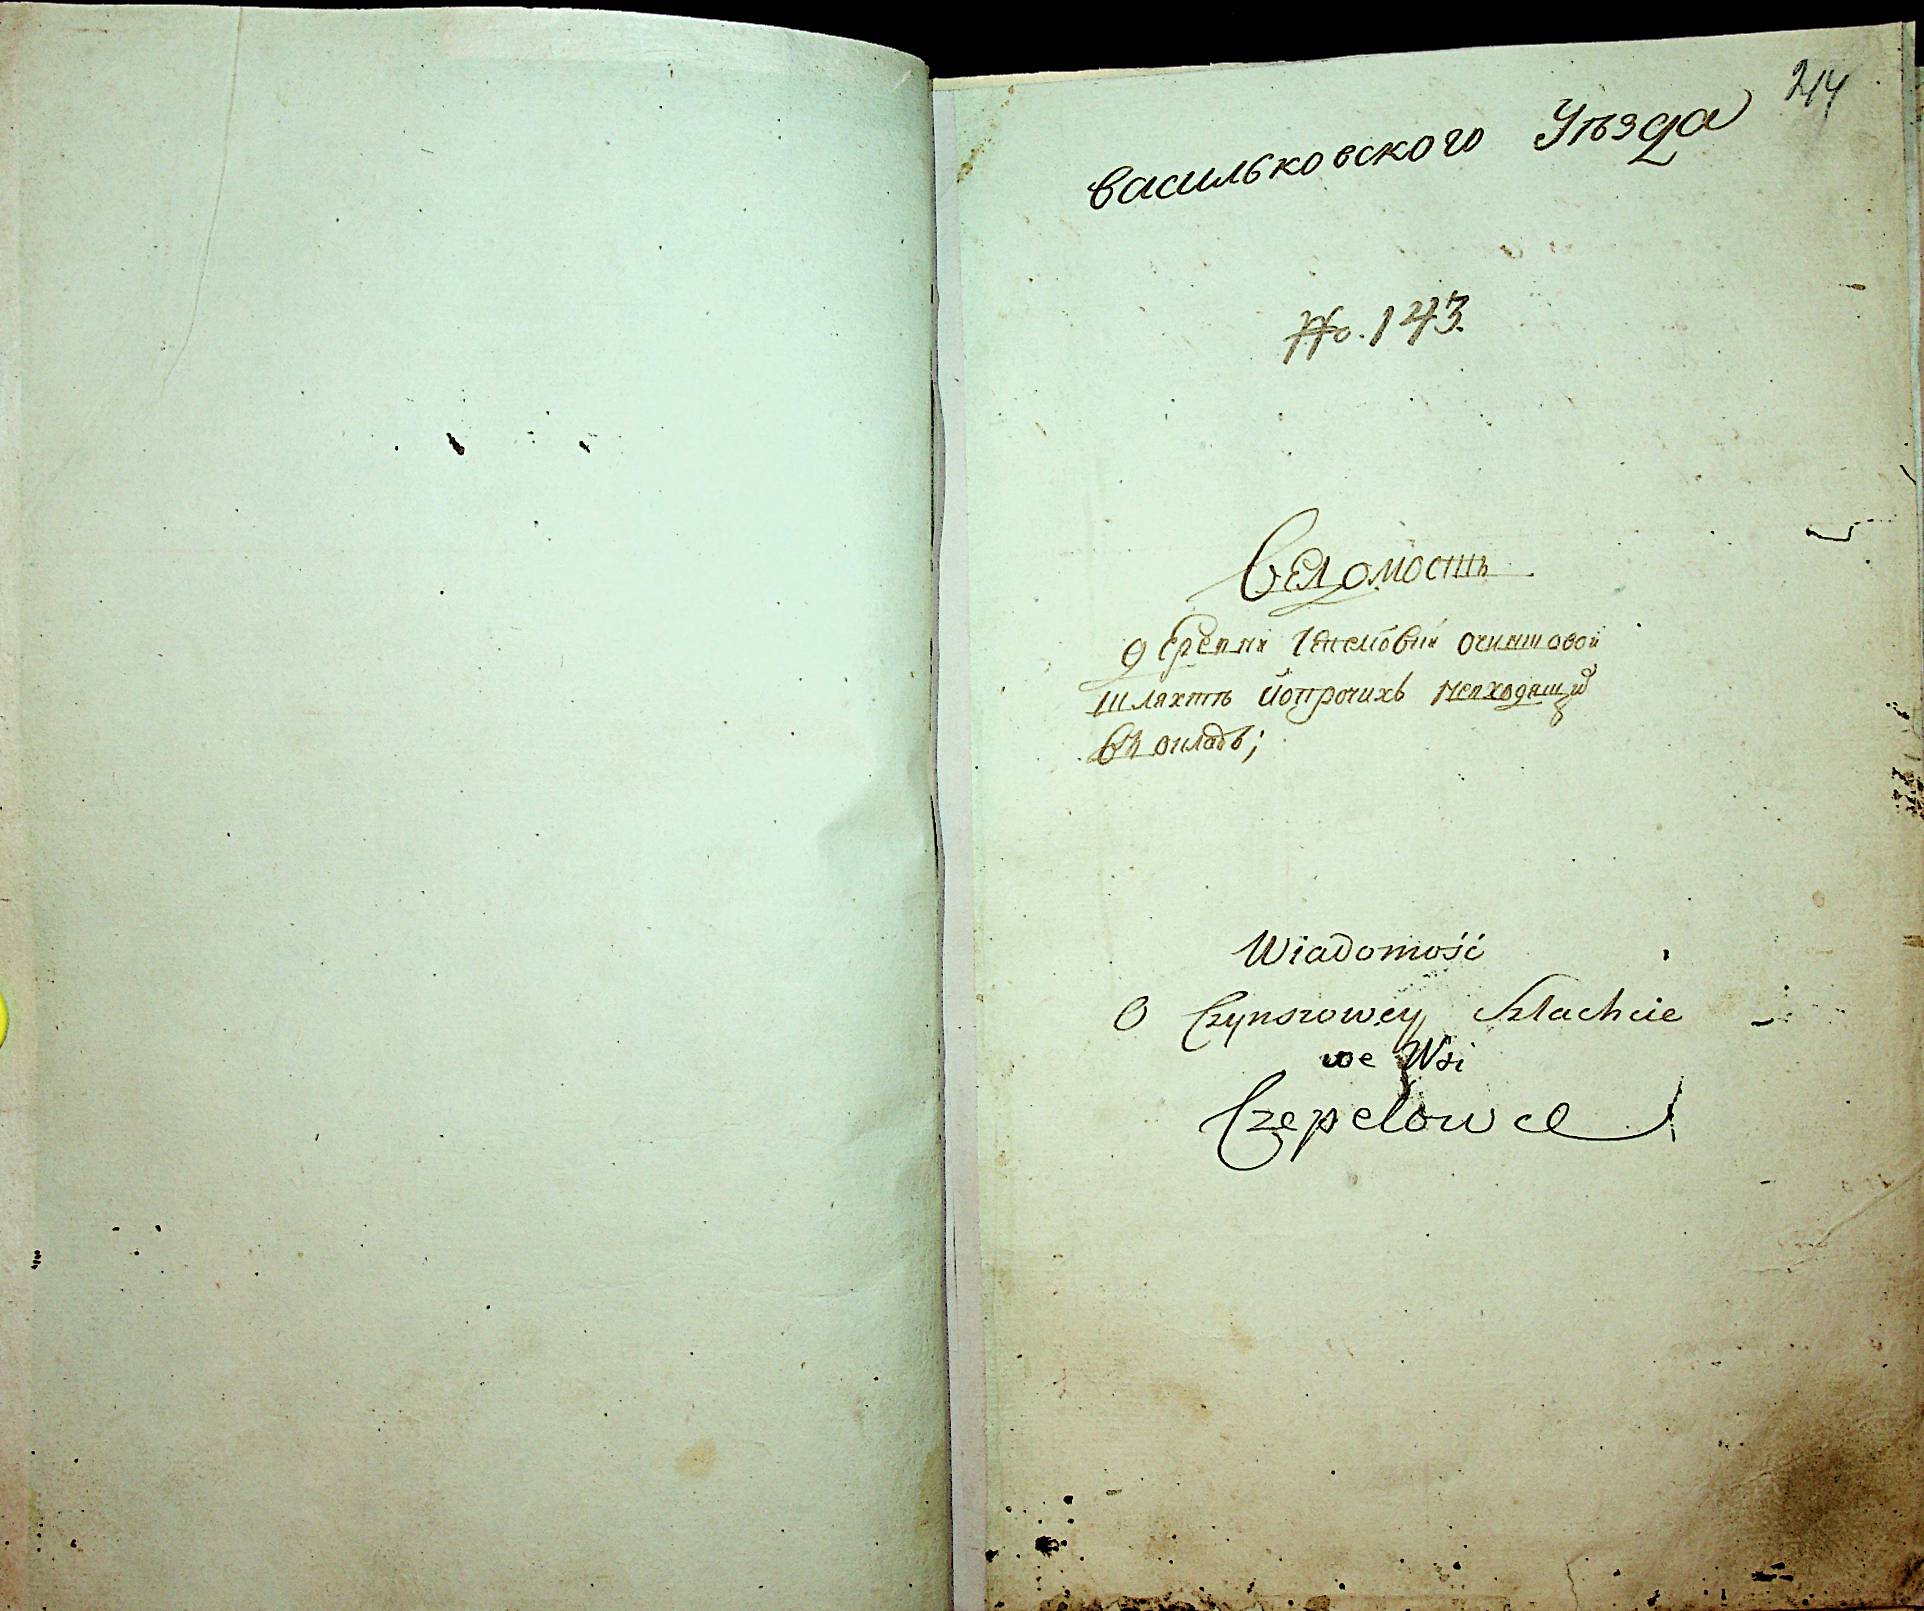 214
Васильковского Уѣзда
No. 143.
Ведомость
деревни Чепеловки очиншовой
шляхтѣ й опрочихъ невходящих
въ окладъ;
Wiadomość
O Czynszowey Szlachcie
we Wsi
Czepelowce